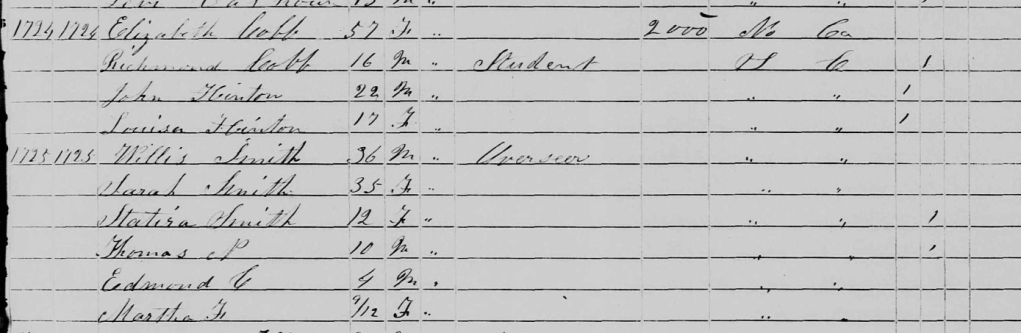 1724 1724 Elizabeth Cobb 57 F " 2000 No Ca
Richmond Cobb 16 M " Student S C 1
John Hinton 22 M " " " 1
Louisa Hinton 17 F " " " 1
1725 1725 Willis Smith 36 M " Overseer " "
Sarah Smith 35 F " " "
Statira Smith 12 F " " " 1
Thomas P 10 M " " " 1
Edmond C 4 M " " "
Martha F 9/12 F " " "